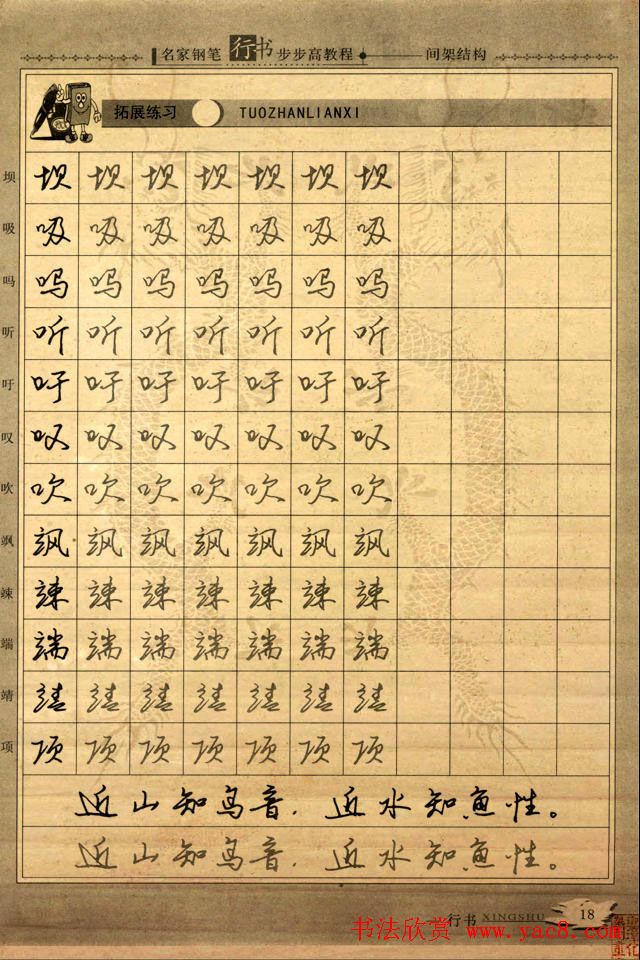 名家钢笔行书步步高教程 间架结构
拓展练习 TUOZHANLIANXI
坝 坝 坝 坝 坝 坝 坝 坝
吸 吸 吸 吸 吸 吸 吸 吸
吗 吗 吗 吗 吗 吗 吗 吗
听 听 听 听 听 听 听 听
吁 吁 吁 吁 吁 吁 吁 吁
叹 叹 叹 叹 叹 叹 叹 叹
吹 吹 吹 吹 吹 吹 吹 吹
飒 飒 飒 飒 飒 飒 飒 飒
竦 竦 竦 竦 竦 竦 竦 竦
端 端 端 端 端 端 端 端
靖 靖 靖 靖 靖 靖 靖 靖
项 项 项 项 项 项 项 项
近山知鸟音，近水知鱼性。
近山知鸟音，近水知鱼性。
行书 XINGSHU 18
书法欣赏 www.yac8.com